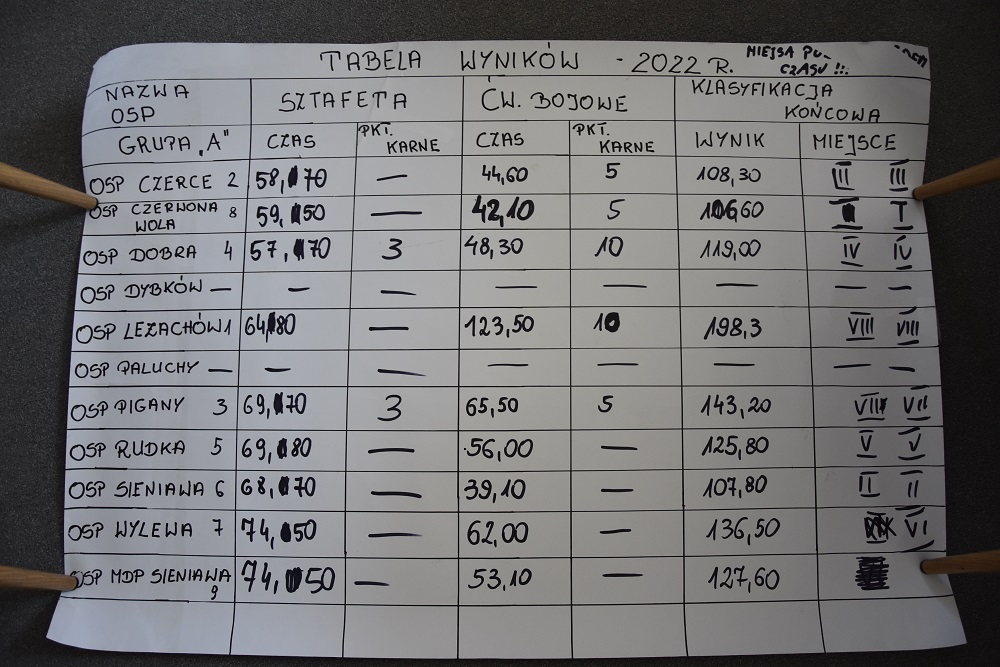 TABELA WYNIKÓW - 2022 R.
MIEJSA
CZASU !!!
NAZWA OSP SZTAFETA ĆW. BOJOWE KLASYFIKACJA KOŃCOWA
GRUPA "A" CZAS PKT. KARNE CZAS PKT. KARNE WYNIK MIEJSCE
OSP CZERCE 2 58,70 — 44,60 5 108,30 III III
OSP CZERWONA WOLA 8 59,50 — 42,10 5 106,60 I
OSP DOBRA 4 57,70 3 48,30 10 119,00 IV IV
OSP DYBKÓW — — — — — — — —
OSP LEZACHÓW 1 64,80 — 123,50 10 198,3 VIII VIII
OSP PALUCHY — — — — — — — —
OSP PIGANY 3 69,70 3 65,50 5 143,20 VII VII
OSP RUDKA 5 69,80 — 56,00 — 125,80 V V
OSP SIENIAWA 6 68,70 — 39,10 — 107,80 II II
OSP WYLEWA 7 74,50 — 62,00 — 136,50 VI
OSP MDP SIENIAWA 9 74,50 — 53,10 — 127,60